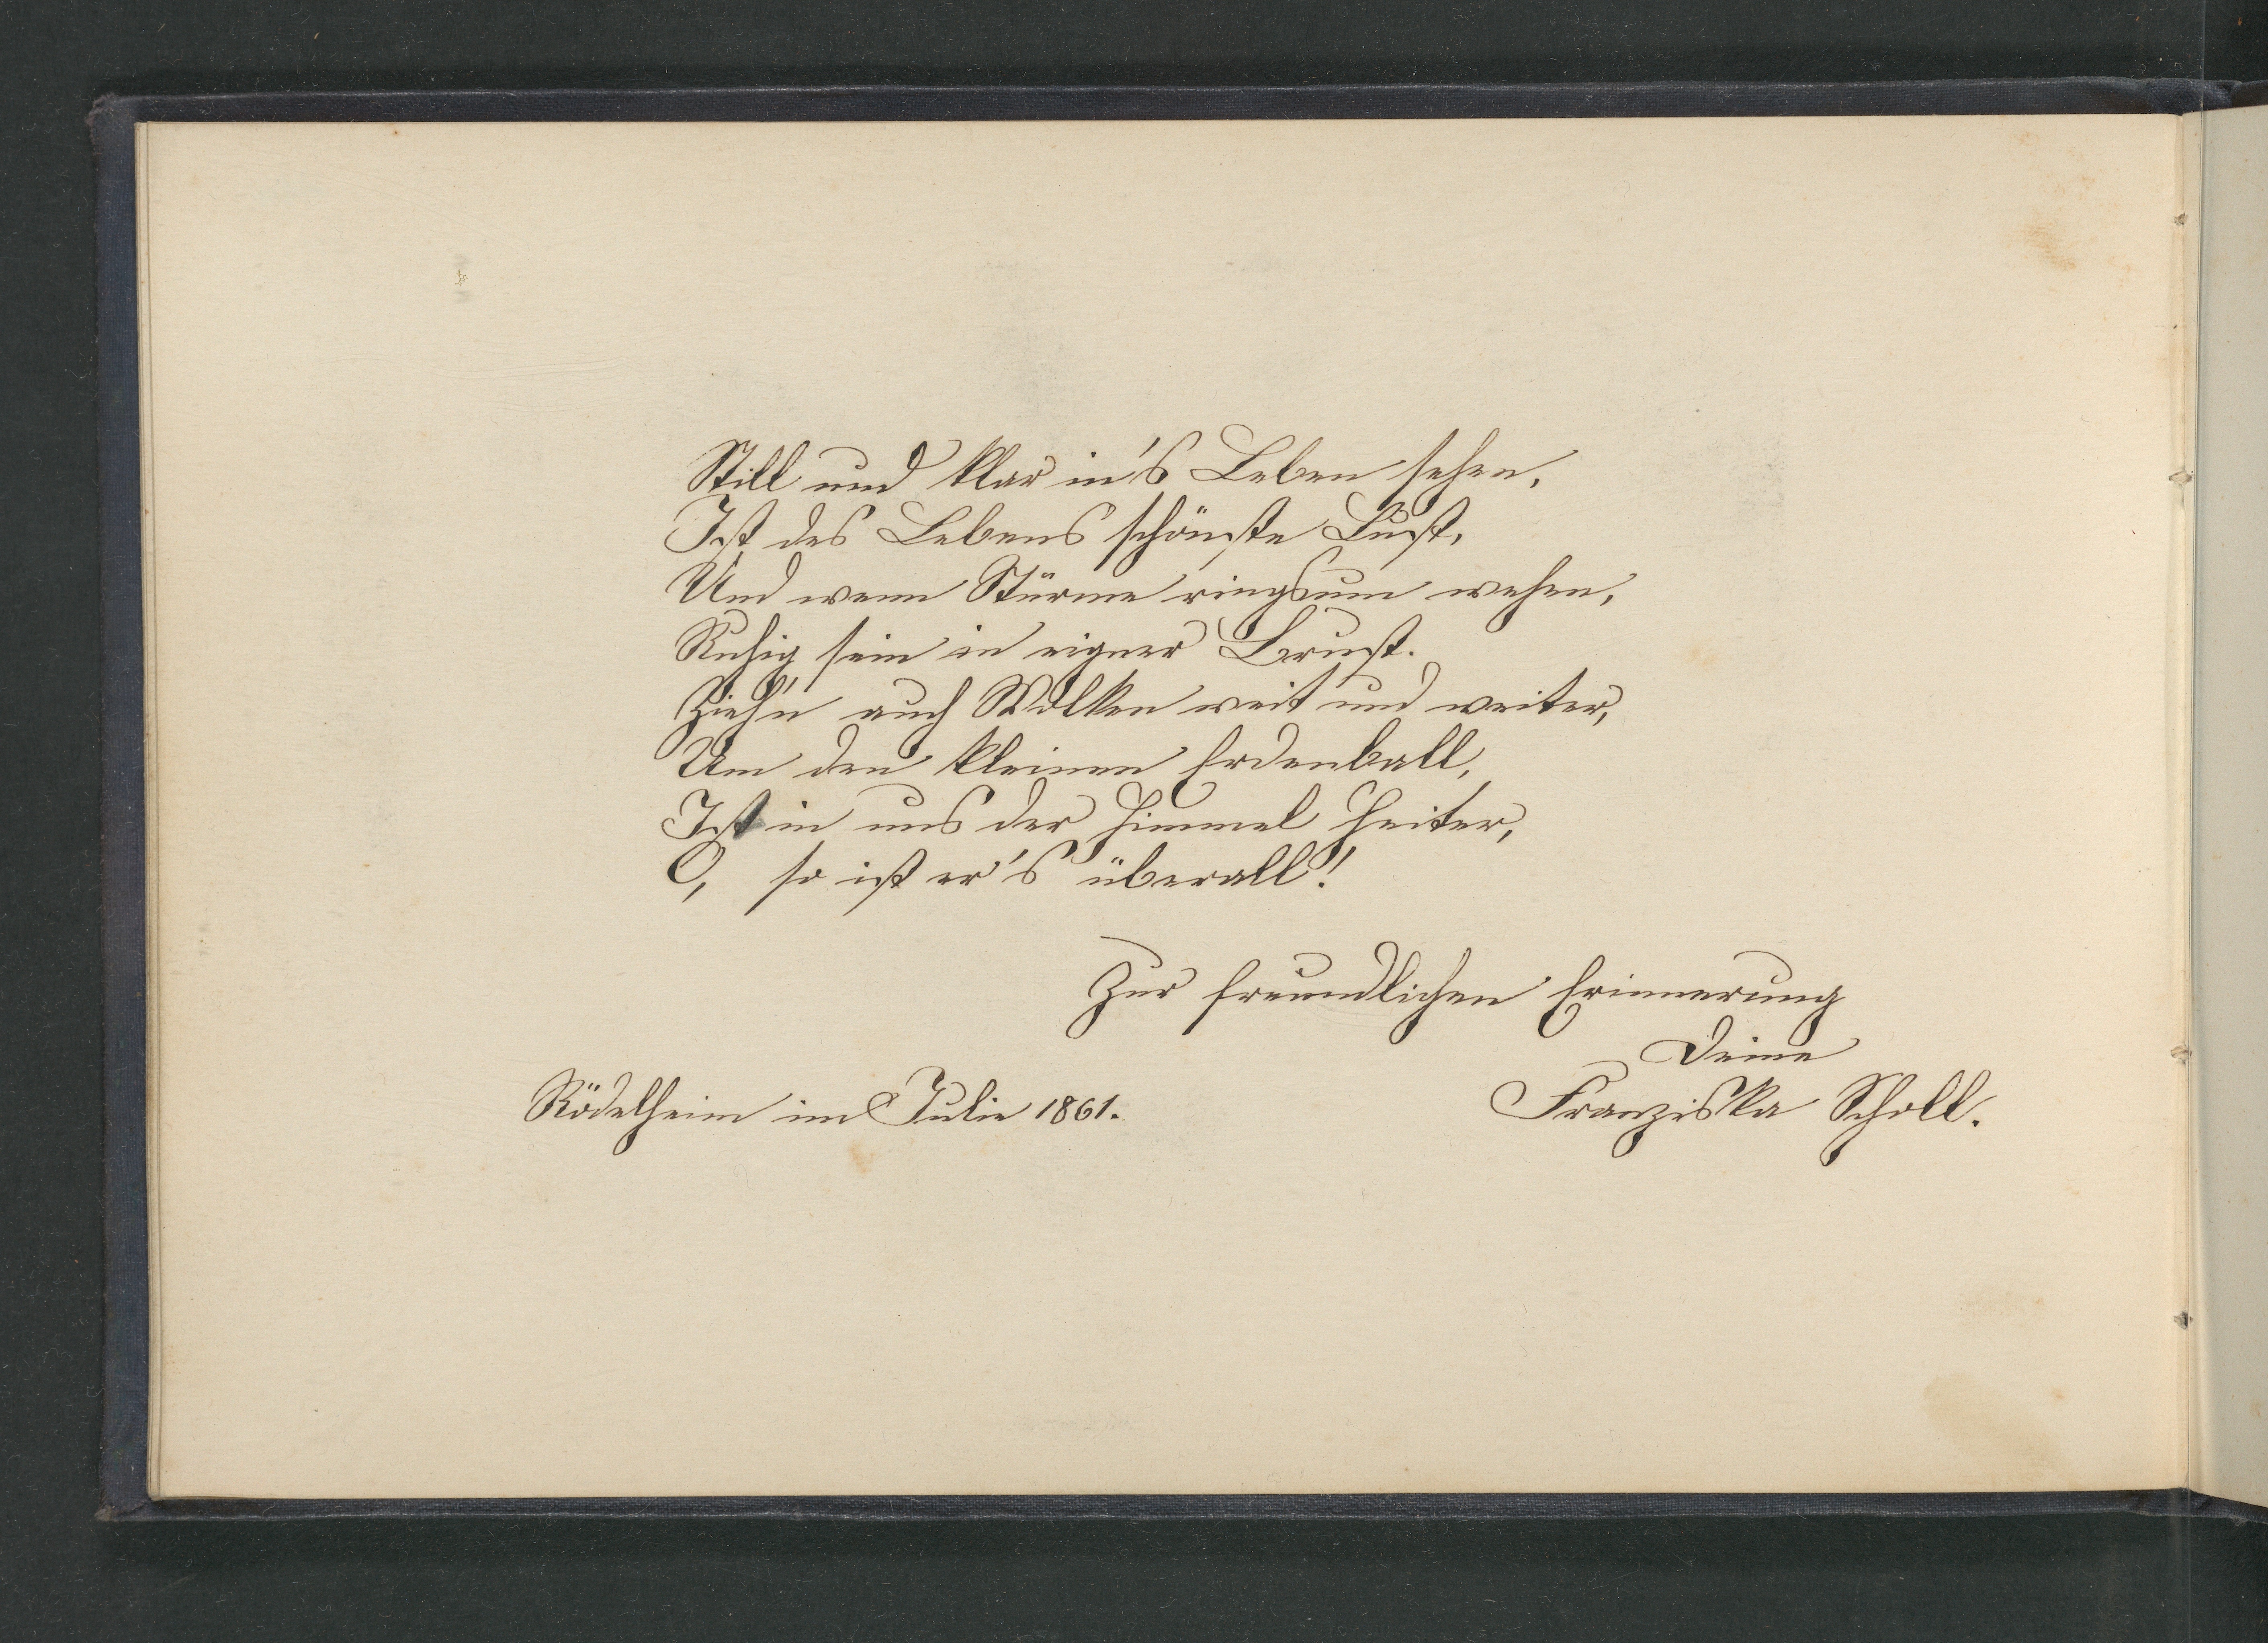 Still und klar in's Leben sehen,
Ist des Lebens schönste Lust,
Und wenn Stürme ringsum wehen,
Ruhig sein in eigner Brust.
Zieh'n auch Wolken weit und weiter,
Um den kleinen Erdenball,
Ist in uns der Himmel heiter,
O, so ist er's überall!
Zur freundlichen Erinnerung
Deine
Rödelheim im Julie 1861. Franziska Scholl.